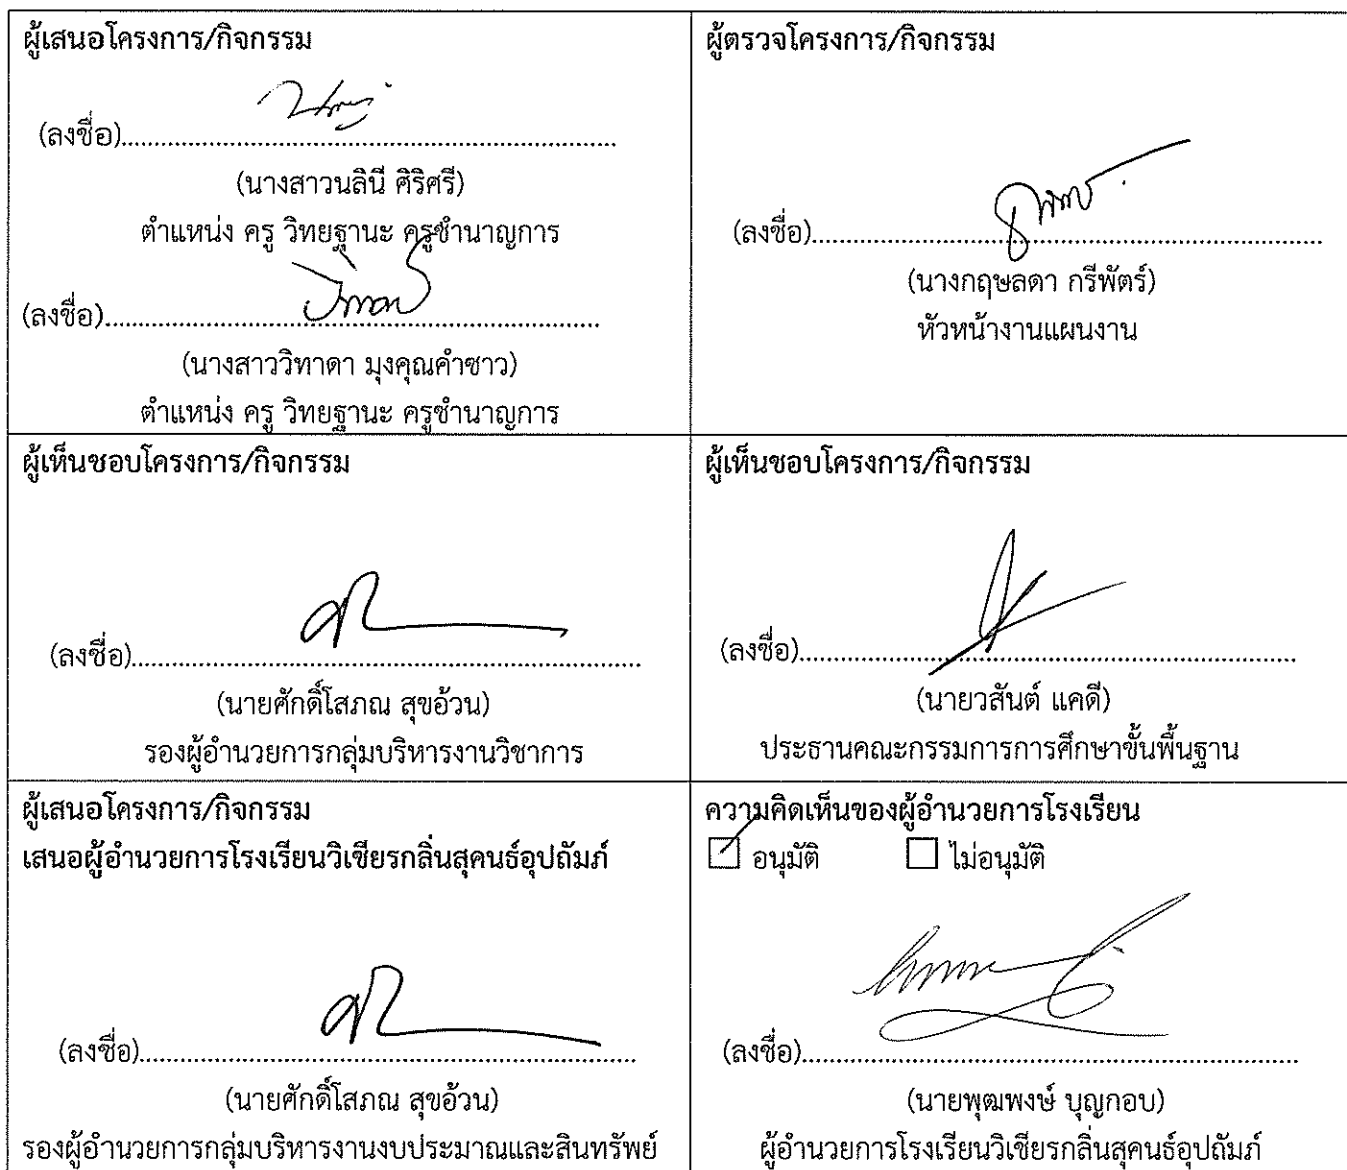 ผู้เสนอโครงการ/กิจกรรม
(ลงชื่อ)
(นางสาวนลินี ศิริศรี)
ตำแหน่ง ครู วิทยฐานะ ครูชำนาญการ
(ลงชื่อ)
(นางสาววิทาดา มุงคุณคำซาว)
ตำแหน่ง ครู วิทยฐานะ ครูชำนาญการ
ผู้ตรวจโครงการ/กิจกรรม
(ลงชื่อ)
(นางกฤษลดา กรีพัตร์)
หัวหน้างานแผนงาน
ผู้เห็นชอบโครงการ/กิจกรรม
(ลงชื่อ)
(นายศักดิ์โสภณ สุขอ้วน)
รองผู้อำนวยการกลุ่มบริหารงานวิชาการ
ผู้เห็นชอบโครงการ/กิจกรรม
(ลงชื่อ)
(นายวสันต์ แคดี)
ประธานคณะกรรมการการศึกษาขั้นพื้นฐาน
ผู้เสนอโครงการ/กิจกรรม
เสนอผู้อำนวยการโรงเรียนวิเชียรกลิ่นสุคนธ์อุปถัมภ์
(ลงชื่อ)
(นายศักดิ์โสภณ สุขอ้วน)
รองผู้อำนวยการกลุ่มบริหารงานงบประมาณและสินทรัพย์
ความคิดเห็นของผู้อำนวยการโรงเรียน
อนุมัติ ไม่อนุมัติ
(ลงชื่อ)
(นายพุฒพงษ์ บุญกอบ)
ผู้อำนวยการโรงเรียนวิเชียรกลิ่นสุคนธ์อุปถัมภ์